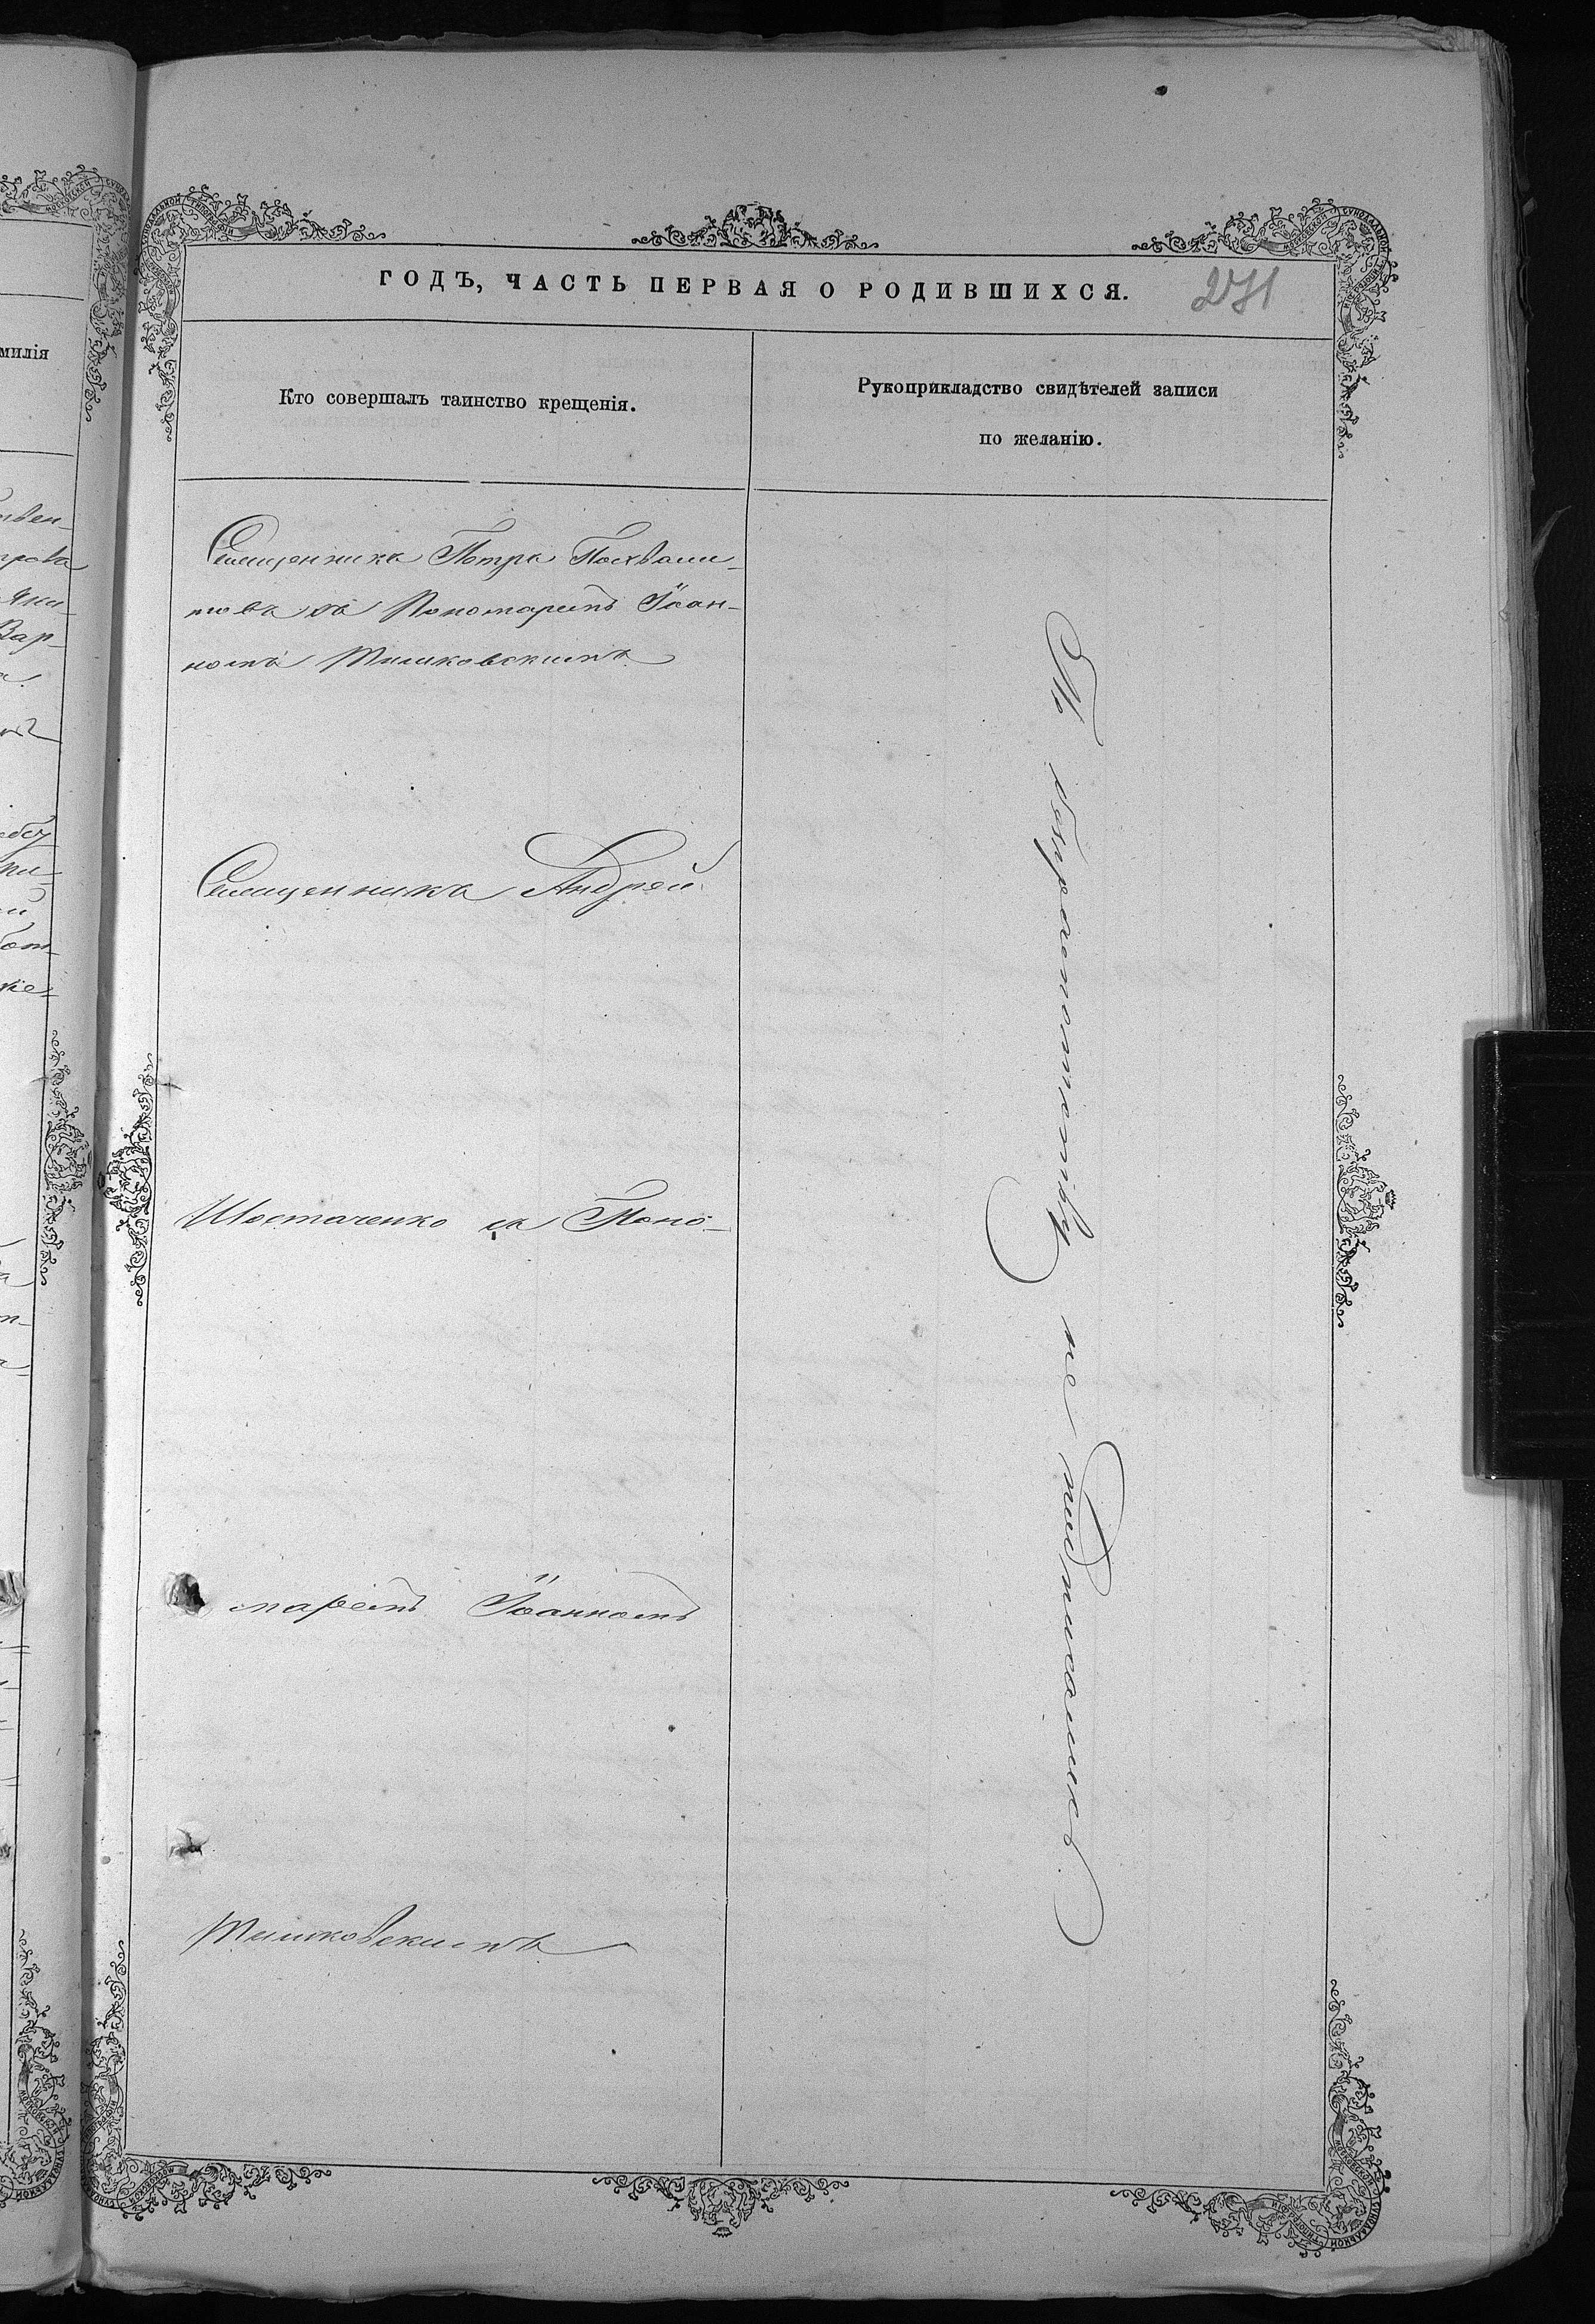 милія
ГОДЪ, ЧАСТЬ ПЕРВАЯ О РОДИВШИХСЯ.
271
Кто совершалъ таинство крещенія.
Рукоприкладство свидѣтелей записи
по желанію.
Священникъ Петръ Похвали-
товъ съ Пономаремъ Іоан-
номъ Тишковскимъ
Священникъ Андрей
Шостаченко съ Поно-
маремъ Іоанномъ
Тишковскимъ
По безграмотству не подписались